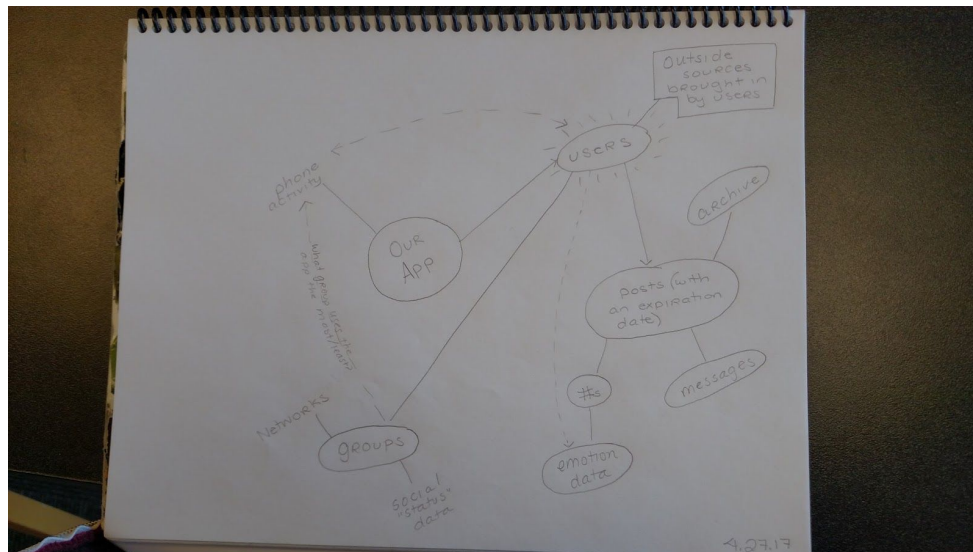 Outside
sources
brought in
by users
users
phone
activity
archive
Our
App
what group uses the
app the most/least
posts (with
an expiration
date)
#s
messages
Networks
groups
emotion
data
social
"status"
data
4.27.17